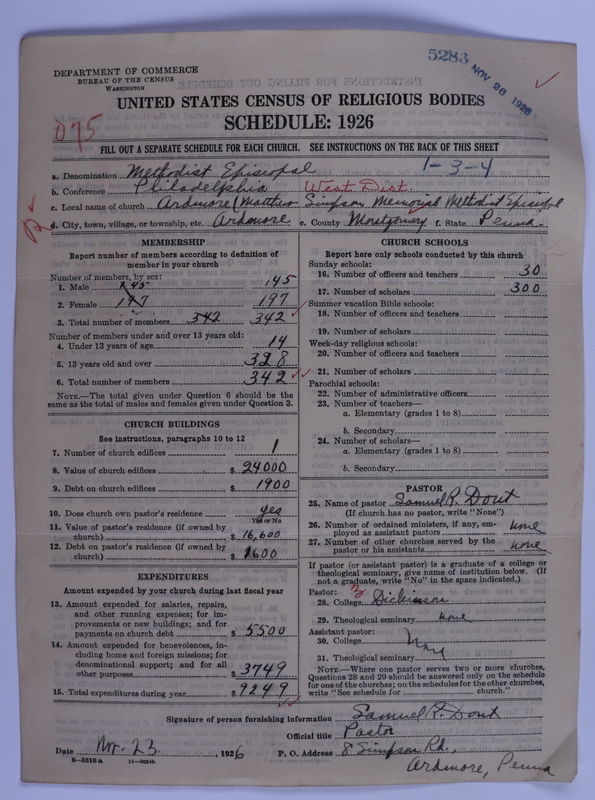 5283 NOV 26 1926
DEPARTMENT OF COMMERCE
BUREAU OF THE CENSUS
WASHINGTON
UNITED STATES CENSUS OF RELIGIOUS BODIES
SCHEDULE: 1926
075
FILL OUT A SEPARATE SCHEDULE FOR EACH CHURCH. SEE INSTRUCTIONS ON THE BACK OF THIS SHEET
1-3-4
a. Denomination Methodist Episcopal
b. Conference Philadelphia West Dist.
c. Local name of church Ardmore (Matthew Simpson Memorial Methodist Episcopal
d. City, town, village, or township, etc. Ardmore e. County Montgomery f. State Penna.
MEMBERSHIP
Report number of members according to definition of
member in your church
Number of members, by sex:
1. Male 145 145
2. Female 197 197
3. Total number of members 342 342
Number of members under and over 13 years old:
4. Under 13 years of age 14
5. 13 years old and over 328
6. Total number of members 342
NOTE.—The total given under Question 6 should be the
same as the total of males and females given under Question 3.
CHURCH BUILDINGS
See instructions, paragraphs 10 to 12
7. Number of church edifices 1
8. Value of church edifices $ 24000
9. Debt on church edifices $ 1900
10. Does church own pastor's residence yes
Yes or No
11. Value of pastor's residence (if owned by
church) $ 16,600
12. Debt on pastor's residence (if owned by
church) $ 1600
EXPENDITURES
Amount expended by your church during last fiscal year
13. Amount expended for salaries, repairs,
and other running expenses; for im-
provements or new buildings; and for
payments on church debt $ 5500
14. Amount expended for benevolences, in-
cluding home and foreign missions; for
denominational support; and for all
other purposes $ 3749
15. Total expenditures during year $ 9249
CHURCH SCHOOLS
Report here only schools conducted by this church
Sunday schools:
16. Number of officers and teachers 30
17. Number of scholars 300
Summer vacation Bible schools:
18. Number of officers and teachers
19. Number of scholars
Week-day religious schools:
20. Number of officers and teachers
21. Number of scholars
Parochial schools:
22. Number of administrative officers
23. Number of teachers—
a. Elementary (grades 1 to 8)
b. Secondary
24. Number of scholars—
a. Elementary (grades 1 to 8)
b. Secondary
PASTOR
25. Name of pastor Samuel R. Dout
(If church has no pastor, write "None")
26. Number of ordained ministers, if any, em-
ployed as assistant pastors none
27. Number of other churches served by the
pastor or his assistants none
If pastor (or assistant pastor) is a graduate of a college or
theological seminary, give name of institution below. (If
not a graduate, write "No" in the space indicated.)
Pastor:
28. College Dickinson
29. Theological seminary none
Assistant pastor:
30. College None
31. Theological seminary
NOTE.—Where one pastor serves two or more churches,
Questions 28 and 29 should be answered only on the schedule
for one of the churches; on the schedules for the other churches,
write "See schedule for church."
Signature of person furnishing information Samuel R. Dout
Official title Pastor
Date Nov. 23, 1926 P. O. Address 8 Simpson Rd.,
Ardmore, Penna
8—5518 a 11—9064b